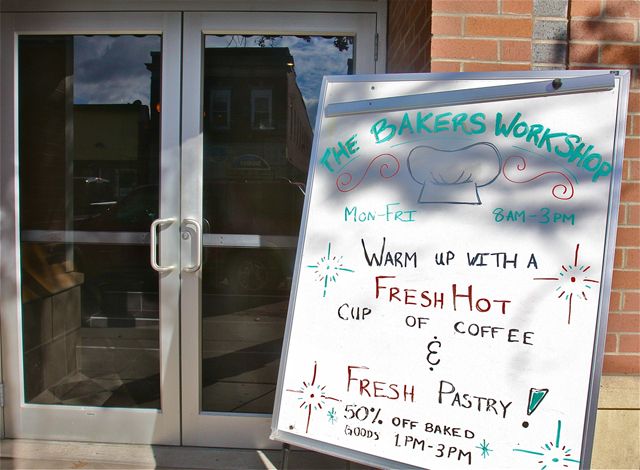 THE BAKERS WORKSHOP
MON-FRI 8AM-3PM
WARM UP WITH A
FRESH HOT
CUP OF COFFEE
&
FRESH PASTRY!
50% OFF BAKED
GOODS 1PM-3PM